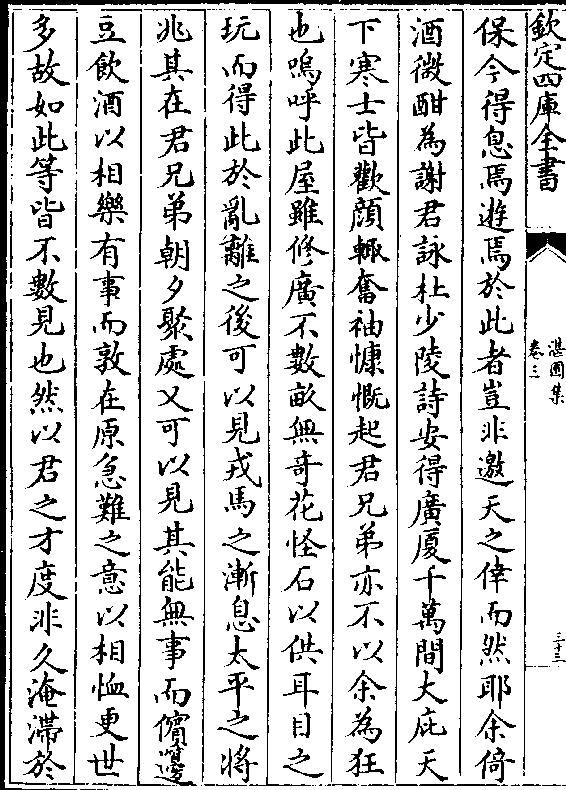 欽定四庫全書
湛園集
卷三
三十三
保今得息焉遊焉於此者豈非邀天之倖而然耶余倚
酒微酣為謝君詠杜少陵詩安得廣厦千萬間大庇天
下寒士皆歡顔輙奮袖慷慨起君兄弟亦不以余為狂
也嗚呼此屋雖修廣不數畝無奇花怪石以供耳目之
玩而得此於亂離之後可以見戎馬之漸息太平之將
兆其在君兄弟朝夕聚處又可以見其能無事而儐籩
豆飲酒以相樂有事而敦在原急難之意以相恤更世
多故如此等皆不數見也然以君之才度非久淹滯於